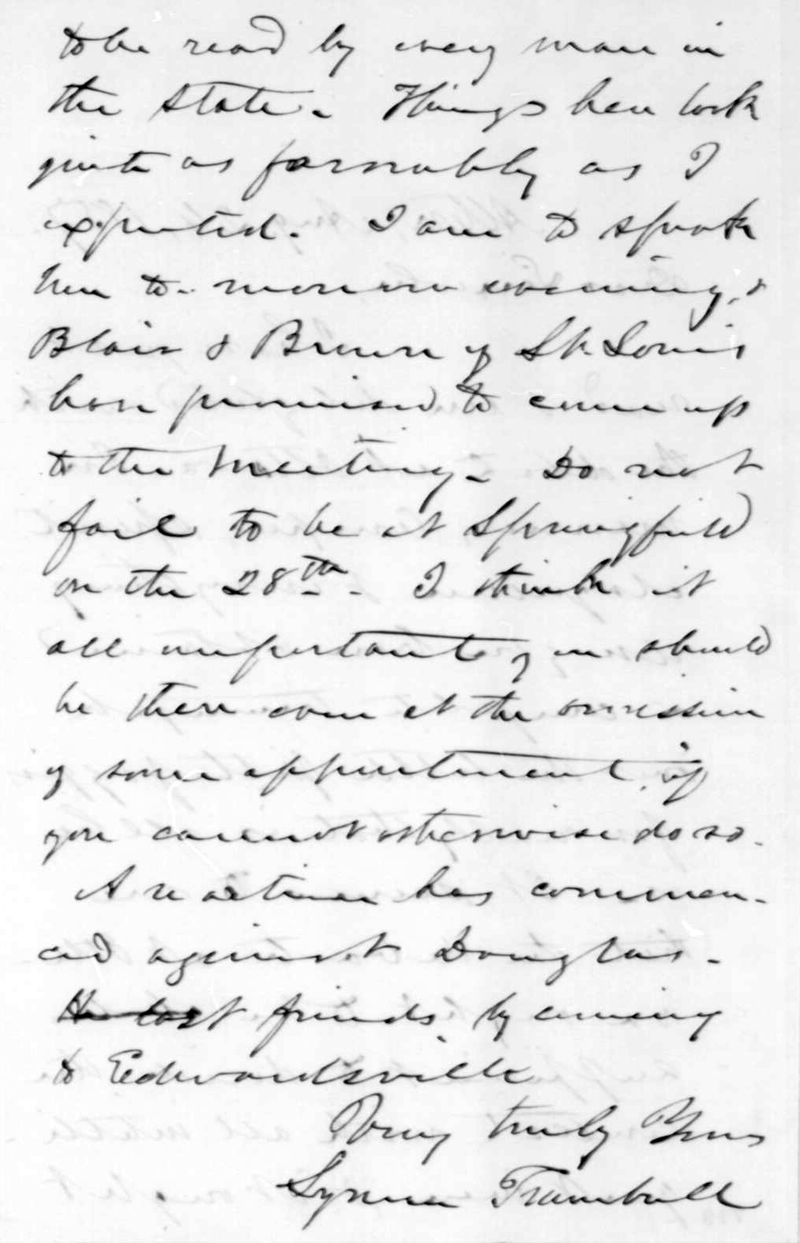 to be read by every man in
the State. Things here look
quite as favorably as I
expected. I am to speak
here to-morrow evening, &
Blair & Brown of St Louis
have promised to come up
to the Meeting. Do not
fail to be at Springfield
on the 28th. I think it
all important you should
be there even at the omission
of some appointment, if
you cannot otherwise do so.
A reaction has commen-
ced against Douglas.
He lost friends by coming
to Edwardsville
Very truly Yours
Lyman Trumbull